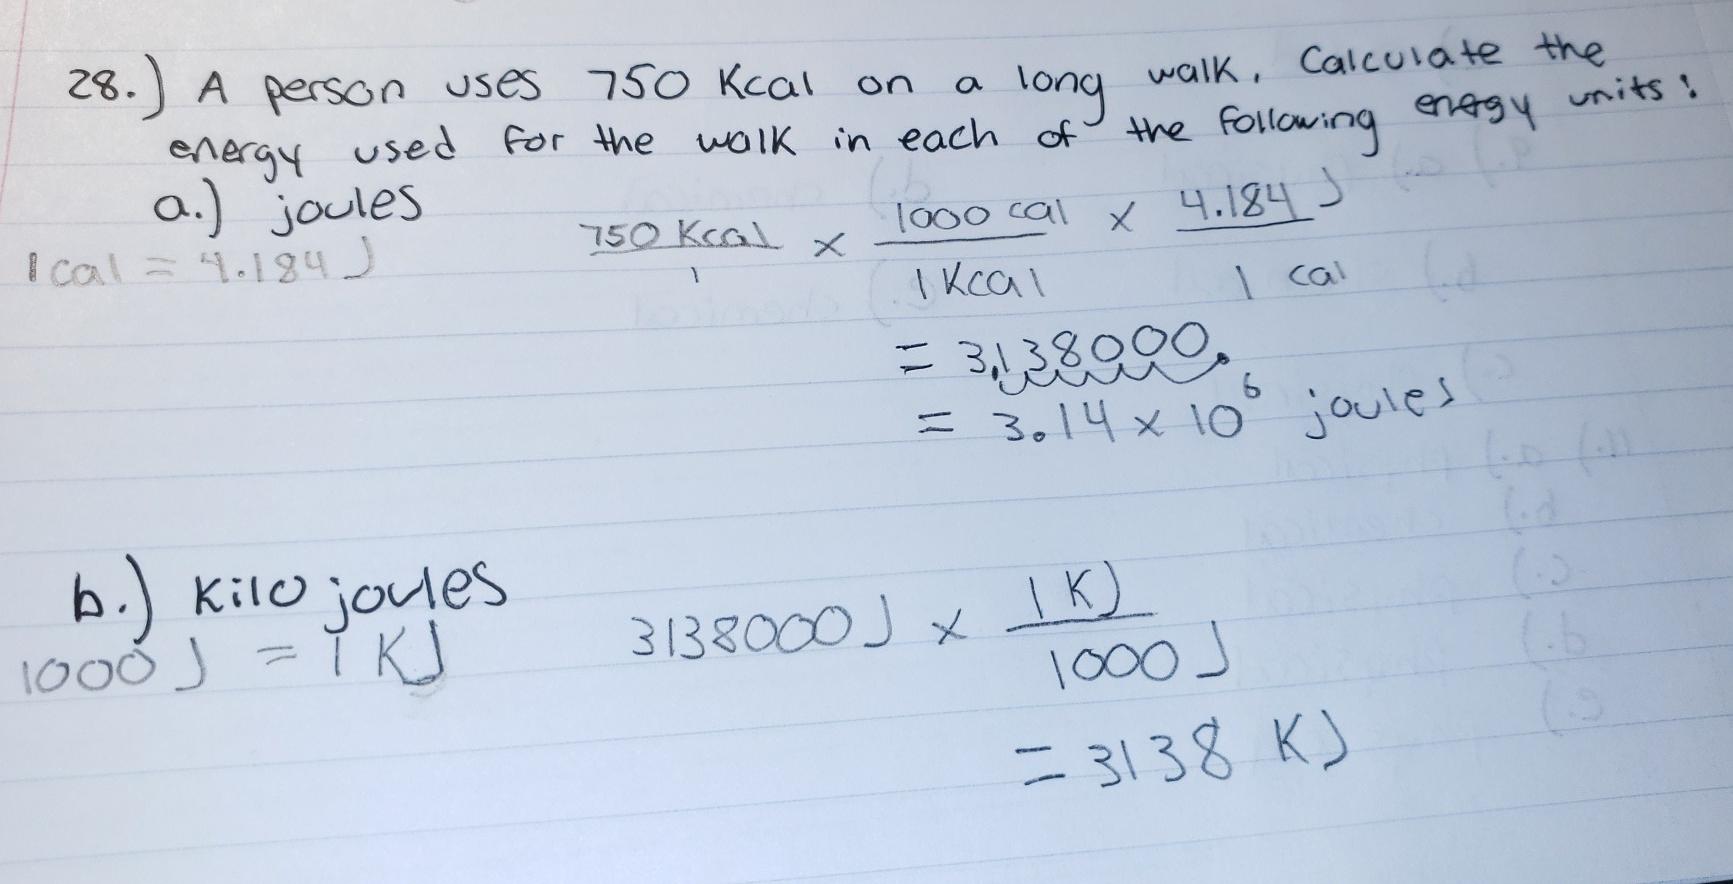 28.) A person uses 750 Kcal on a long walk. Calculate the
energy used for the walk in each of the following energy units:
a.) joules
1 cal = 4.184 J
750 Kcal / 1 x 1000 cal / 1 Kcal x 4.184 J / 1 cal
= 3,138000.
= 3.14 x 10^6 joules
b.) Kilojoules
1000 J = 1 KJ
3138000 J x 1 KJ / 1000 J
= 3138 KJ